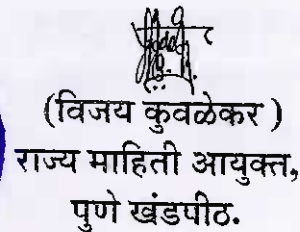 (विजय कुवळेकर )
राज्य माहिती आयुक्त,
पुणे खंडपीठ.